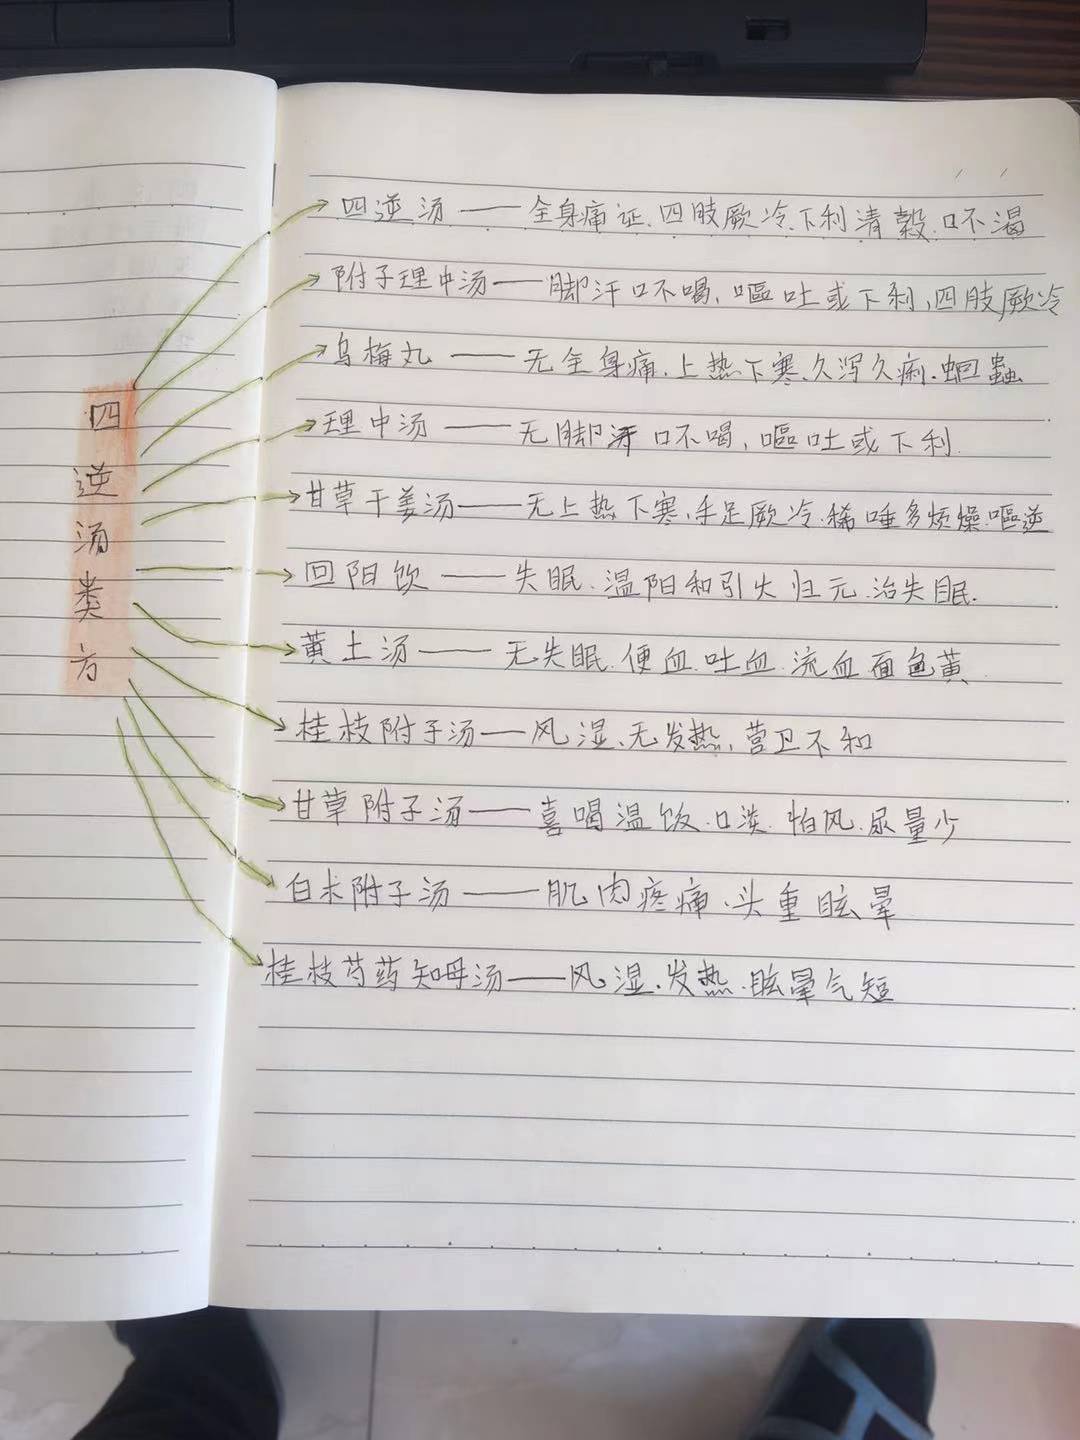 四逆汤类方
四逆汤——全身痛证、四肢厥冷、下利清榖、口不渴
附子理中汤——脚汗口不喝，呕吐或下利，四肢厥冷
乌梅丸——无全身痛、上热下寒、久泻久痢、蛔蟲
理中汤——无脚汗口不喝，嘔吐或下利
甘草干姜汤——无上热下寒，手足厥冷、稀唾多烦燥、嘔逆
回阳饮——失眠、温阳和引火归元、治失眠.
黄土汤——无失眠、便血、吐血、流血面色黄
桂枝附子汤——风湿、无发热，营卫不和
甘草附子汤——喜喝温饭、口淡、怕风、尿量少
白术附子汤——肌肉疼痛、头重眩晕
桂枝芍药知母汤——风湿、发热、眩晕气短